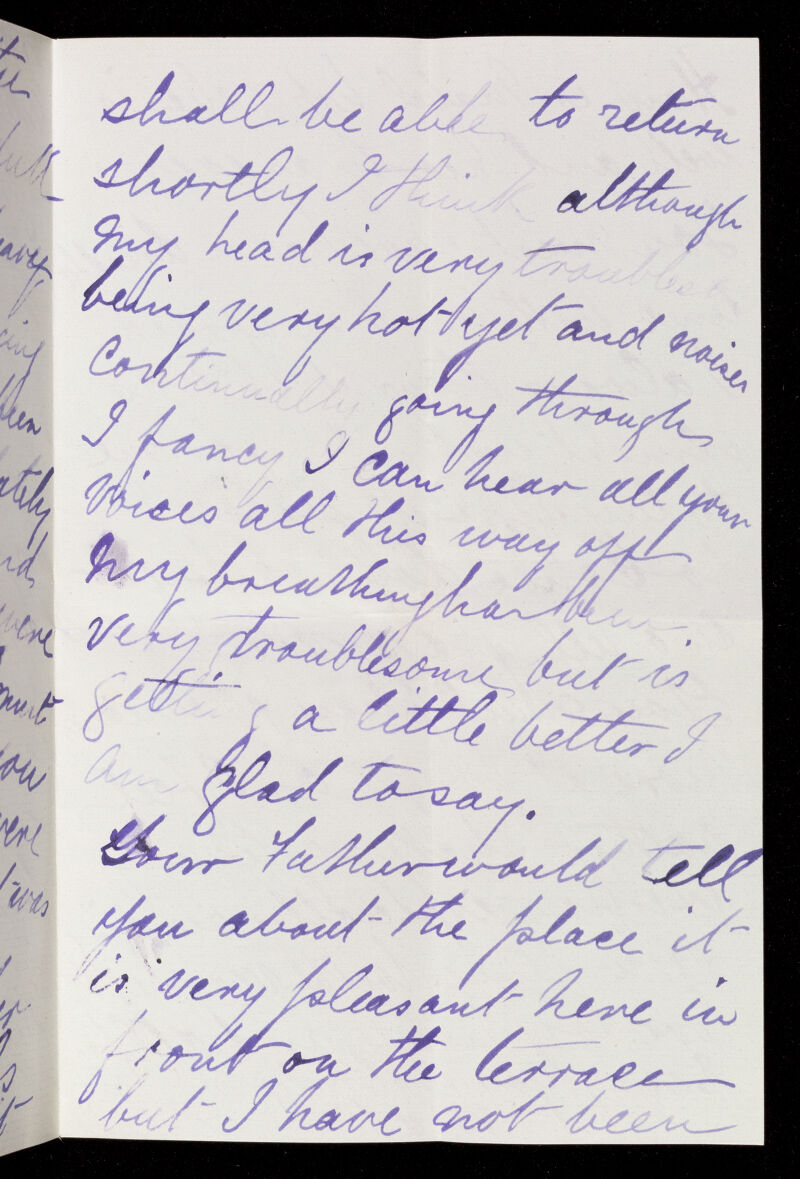 shall be able to return
shortly I think although
my head is very troubles
being very hot yet and noises
continually going through
I fancy I can hear all your
voices all this way off
My breathing has been
very troublesome but is
getting a little better I
am glad to say.
Your Father would tell
you about the place it
is very pleasant here in
front on the terrace
but I have not been